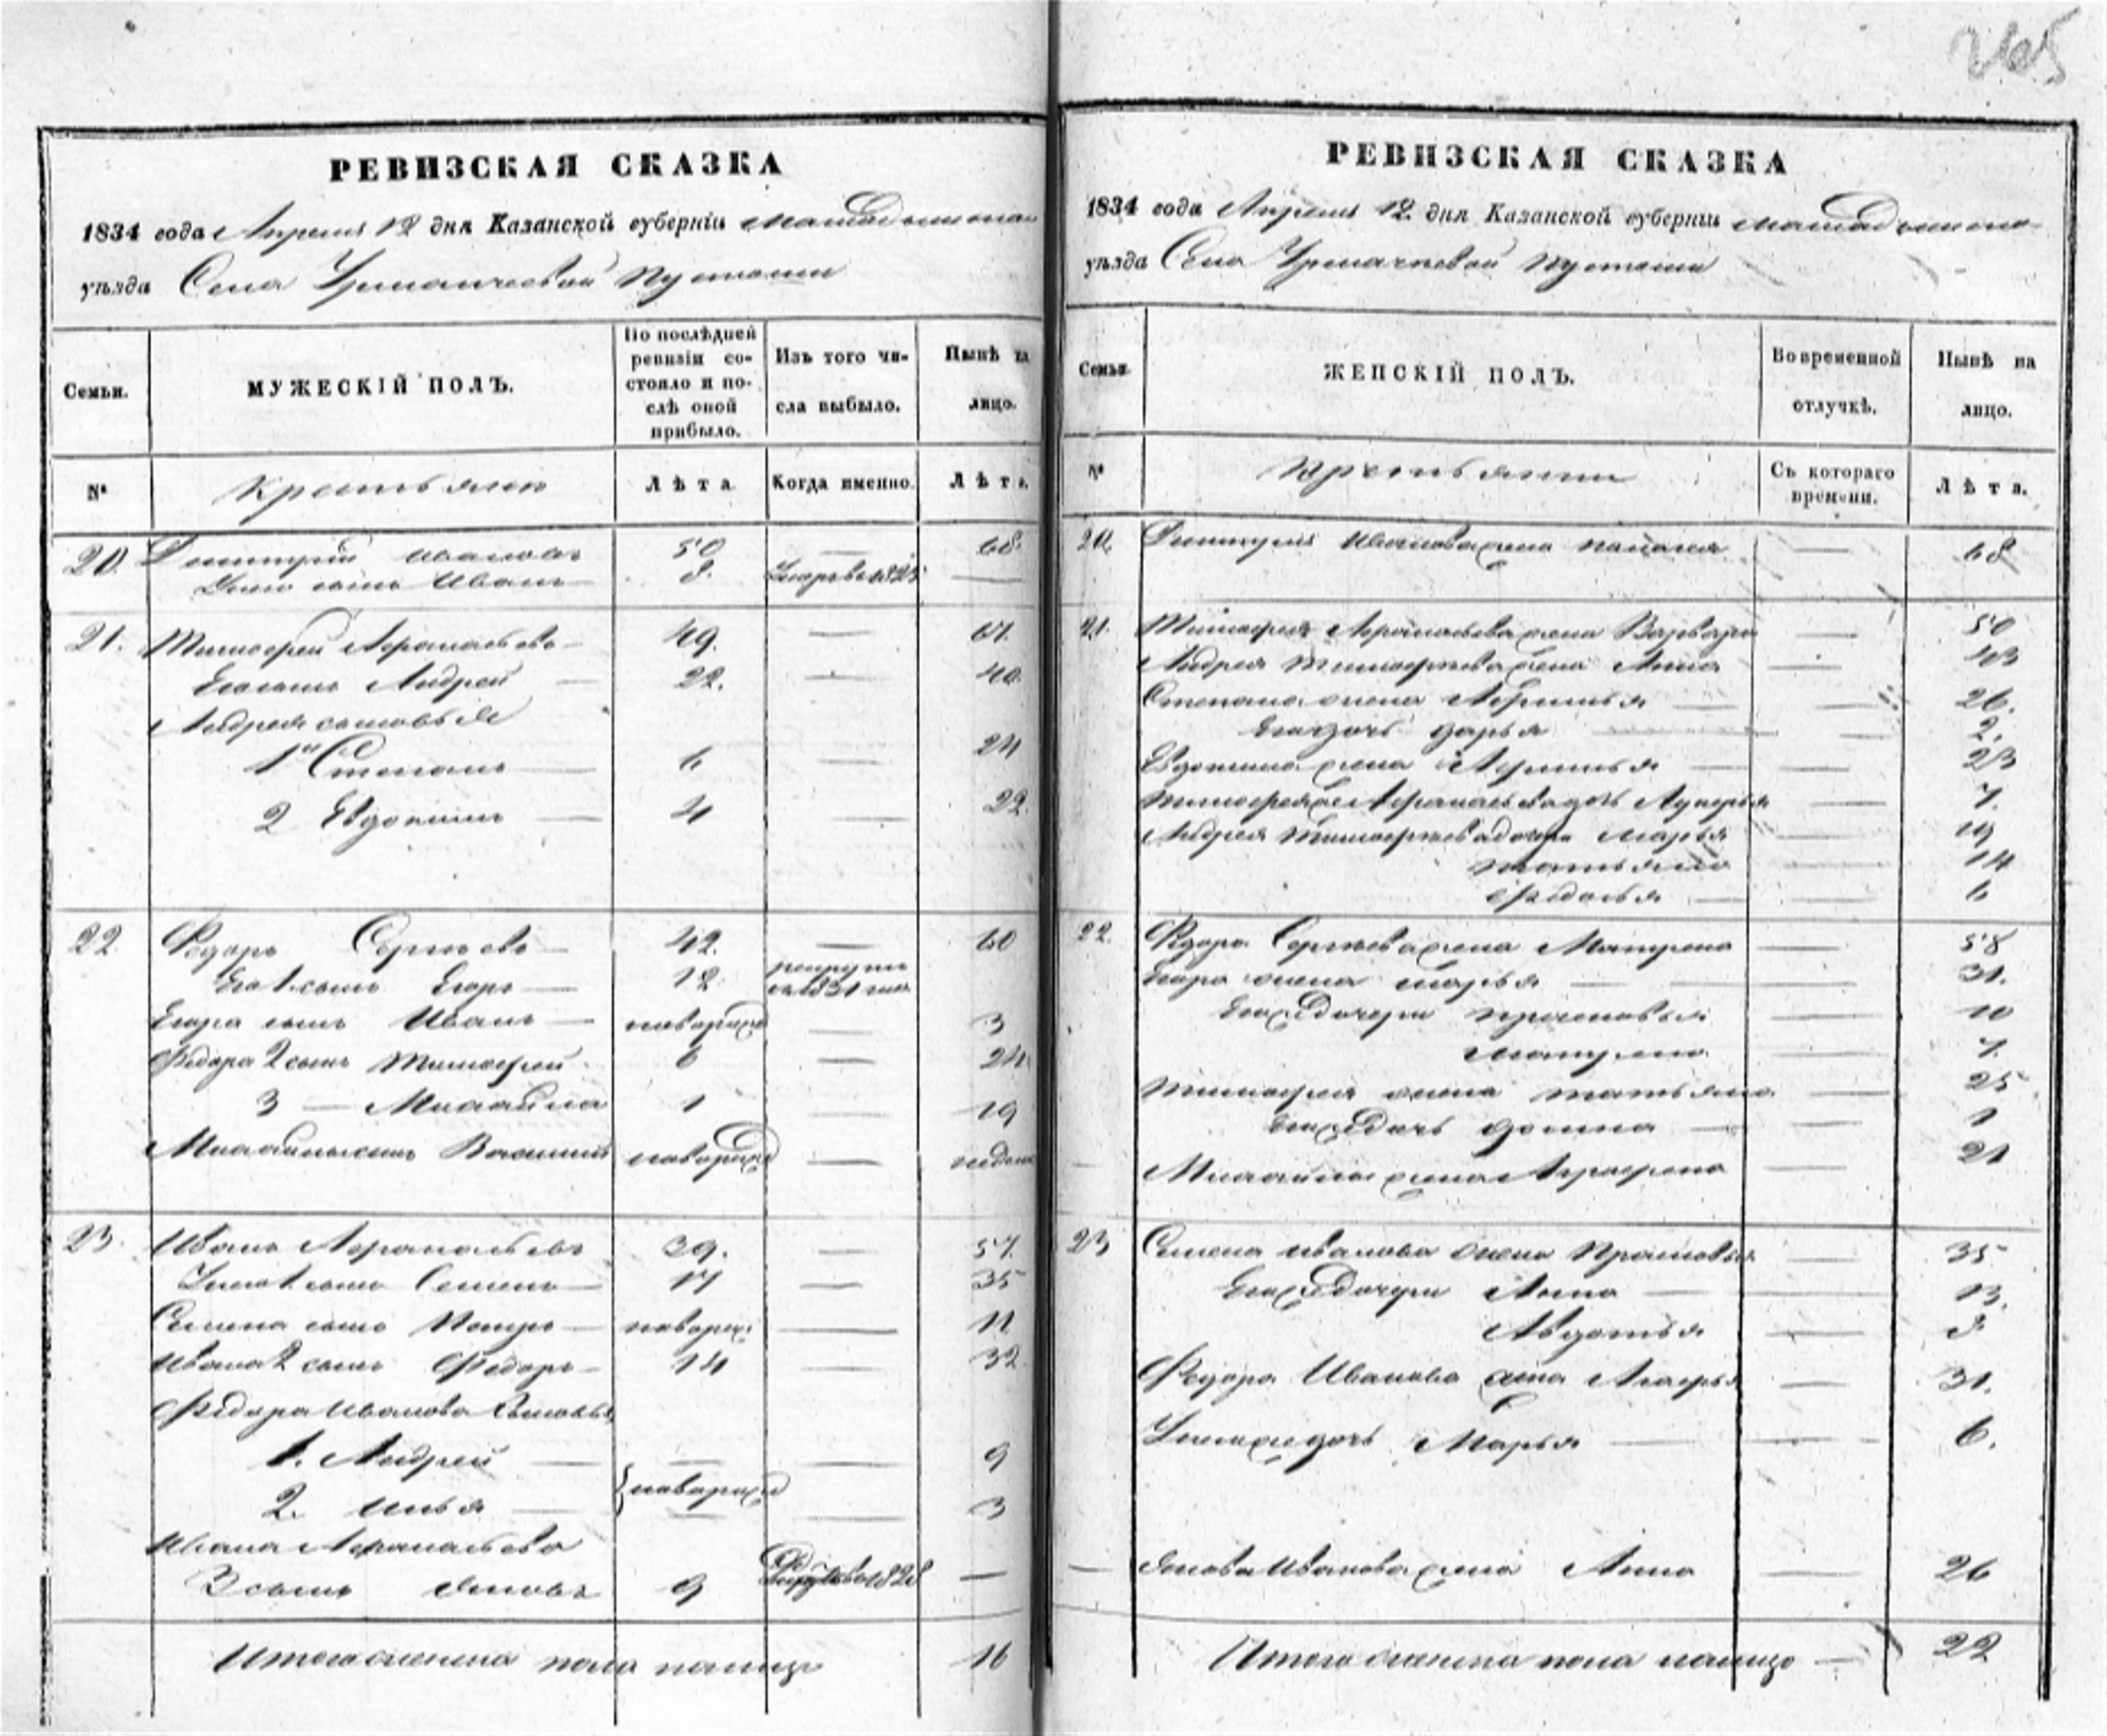 265
РЕВИЗСКАЯ СКАЗКА
1834 года Апреля 12 дня Казанской губерніи
уѣзда Села Пустоши
Семьи.
МУЖЕСКІЙ ПОЛЪ.
По послѣдней ревизіи состояло и послѣ оной прибыло.
Изъ того числа выбыло.
Нынѣ на лицо.
№
Крестьяне
Лѣта
Когда именно.
Лѣта.
20 Дмитрий Ивановъ 50 — 68.
сынъ Иванъ 8. 1825 —
21. Тимофей Афанасьевъ 49. — 67.
Его сынъ Андрей 22. — 40.
Андрея сыновья
1й Степанъ 6 — 24
2 Евдокимъ 4 — 22.
22 Федоръ Сергѣевъ 42. — 60
Его 1 сынъ Егоръ 12 1831
Егора сынъ Иванъ — 3
Федора 2 сынъ Тимофей 6 — 24
3 — Михайла 1 — 19
Михайлы сынъ Василий —
23. Иванъ Афанасьевъ 39. — 57.
1 сынъ Семенъ 17 — 35
Семена сынъ Петръ — 11
Ивана 2 сынъ Федоръ 14 — 32
Федора Иванова сыновья
1. Андрей — 9
2. Илья — 3
Ивана Афанасьева
3 сынъ Яковъ 9 1828 —
Итого мужеска пола налицо 16
РЕВИЗСКАЯ СКАЗКА
1834 года Апреля 12 дня Казанской губерніи
уѣзда Села Пустоши
Семьи.
ЖЕНСКІЙ ПОЛЪ.
Во временной отлучкѣ.
Нынѣ на лицо.
№
Крестьянки
Съ котораго времени.
Лѣта.
20. Дмитрия Иванова жена — 68
21. Тимофея Афанасьева жена Варвара — 50
Андрея Тимофеева жена Анна — 43
Степана жена — 26.
Его дочь Дарья — 2.
Евдокима жена — 23
Тимофея Афанасьева дочь Лукерья — 7.
Андрея Тимофеева дочери Марья — 19
Татьяна — 14
— 6
22. Федора Сергѣева жена Матрена — 58
Егора жена Марья — 31.
Его дочери Прасковья — 10
Матрена — 7.
Тимофея жена Татьяна — 25
Его дочь Домна — 1
Михайлы жена Аграфена — 21
23 Семена Иванова жена Прасковья — 35
Его дочери Анна — 13.
Авдотья — 8
Федора Иванова жена Агафья — 31.
дочь Марья — 6.
— Якова Иванова жена Анна — 26
Итого женска пола налицо — 22